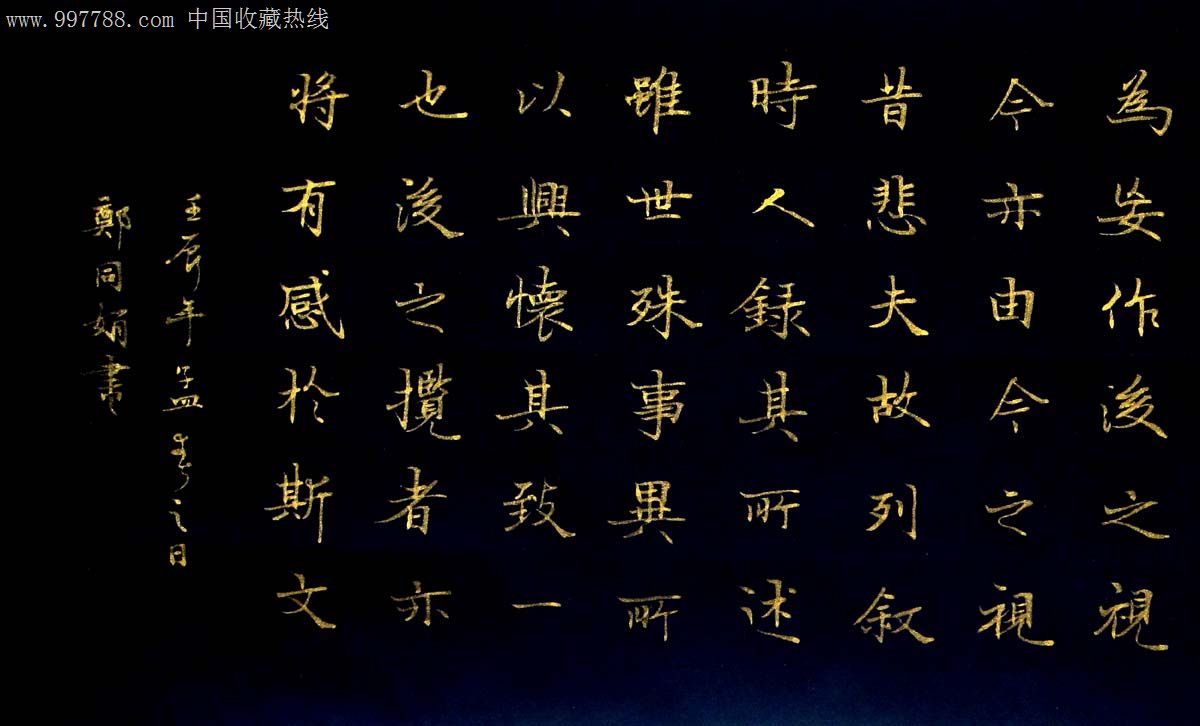 www.997788.com 中国收藏热线
為妄作後之視
今亦由今之視
昔悲夫故列叙
時人録其所述
雖世殊事異所
以興懷其致一
也後之攬者亦
將有感於斯文
壬辰年孟春之日
鄭同娟書